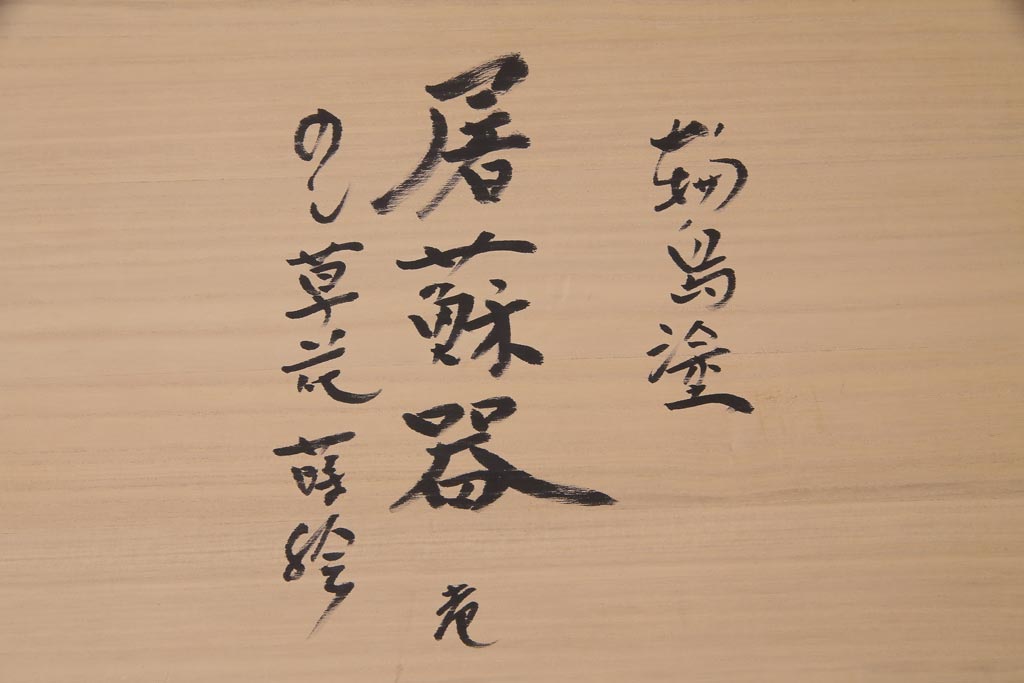 輪島塗
屠蘇器
のし草花蒔絵